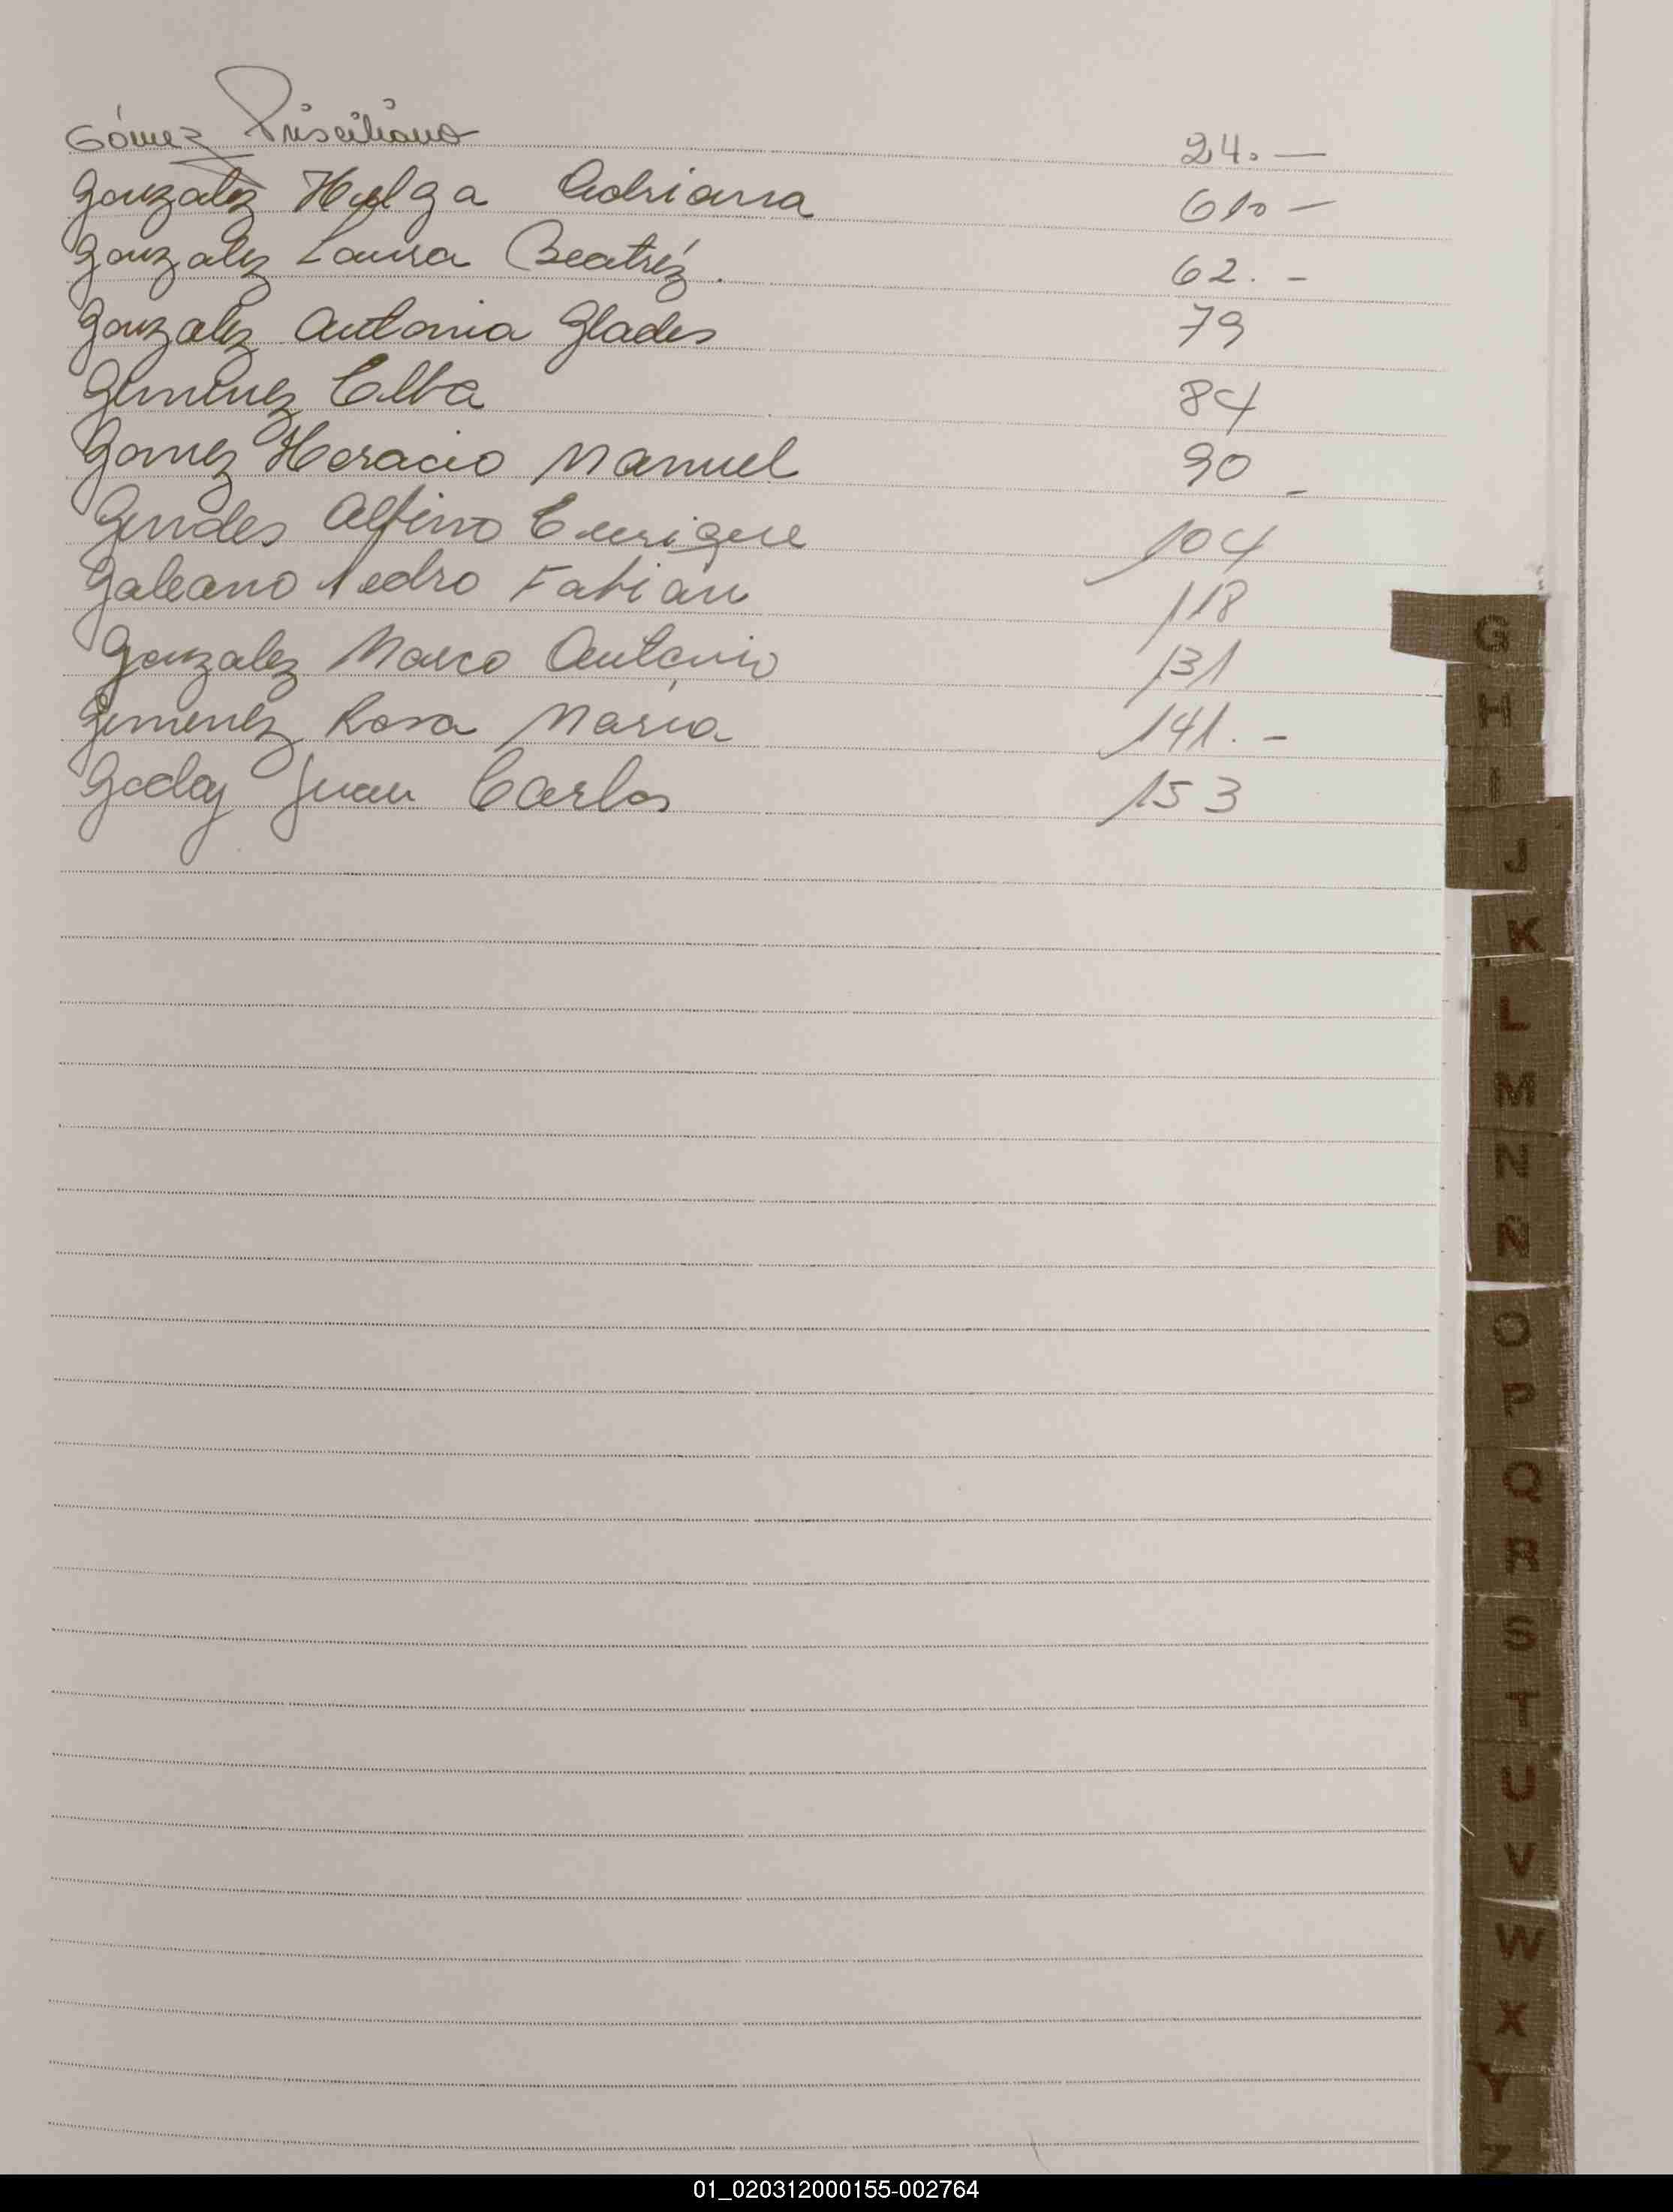 Gómez Prisciliano 24. —
Gonzalez Helga Adriana 60 —
Gonzalez Laura Beatríz. 62. -
Gonzalez Antonia Glades 79
Gimenez Elba 84
Gomez Horacio Manuel 90 -
Alfino Enrique 104
Galeano Pedro Fabián 118
Gonzalez Marco Antonio 131
Gimenez Rosa Maria 141. -
Godoy Juan Carlos 153
G
H
I
J
K
L
M
N
Ñ
O
P
Q
R
S
T
U
V
W
X
Y
Z
01_020312000155-002764